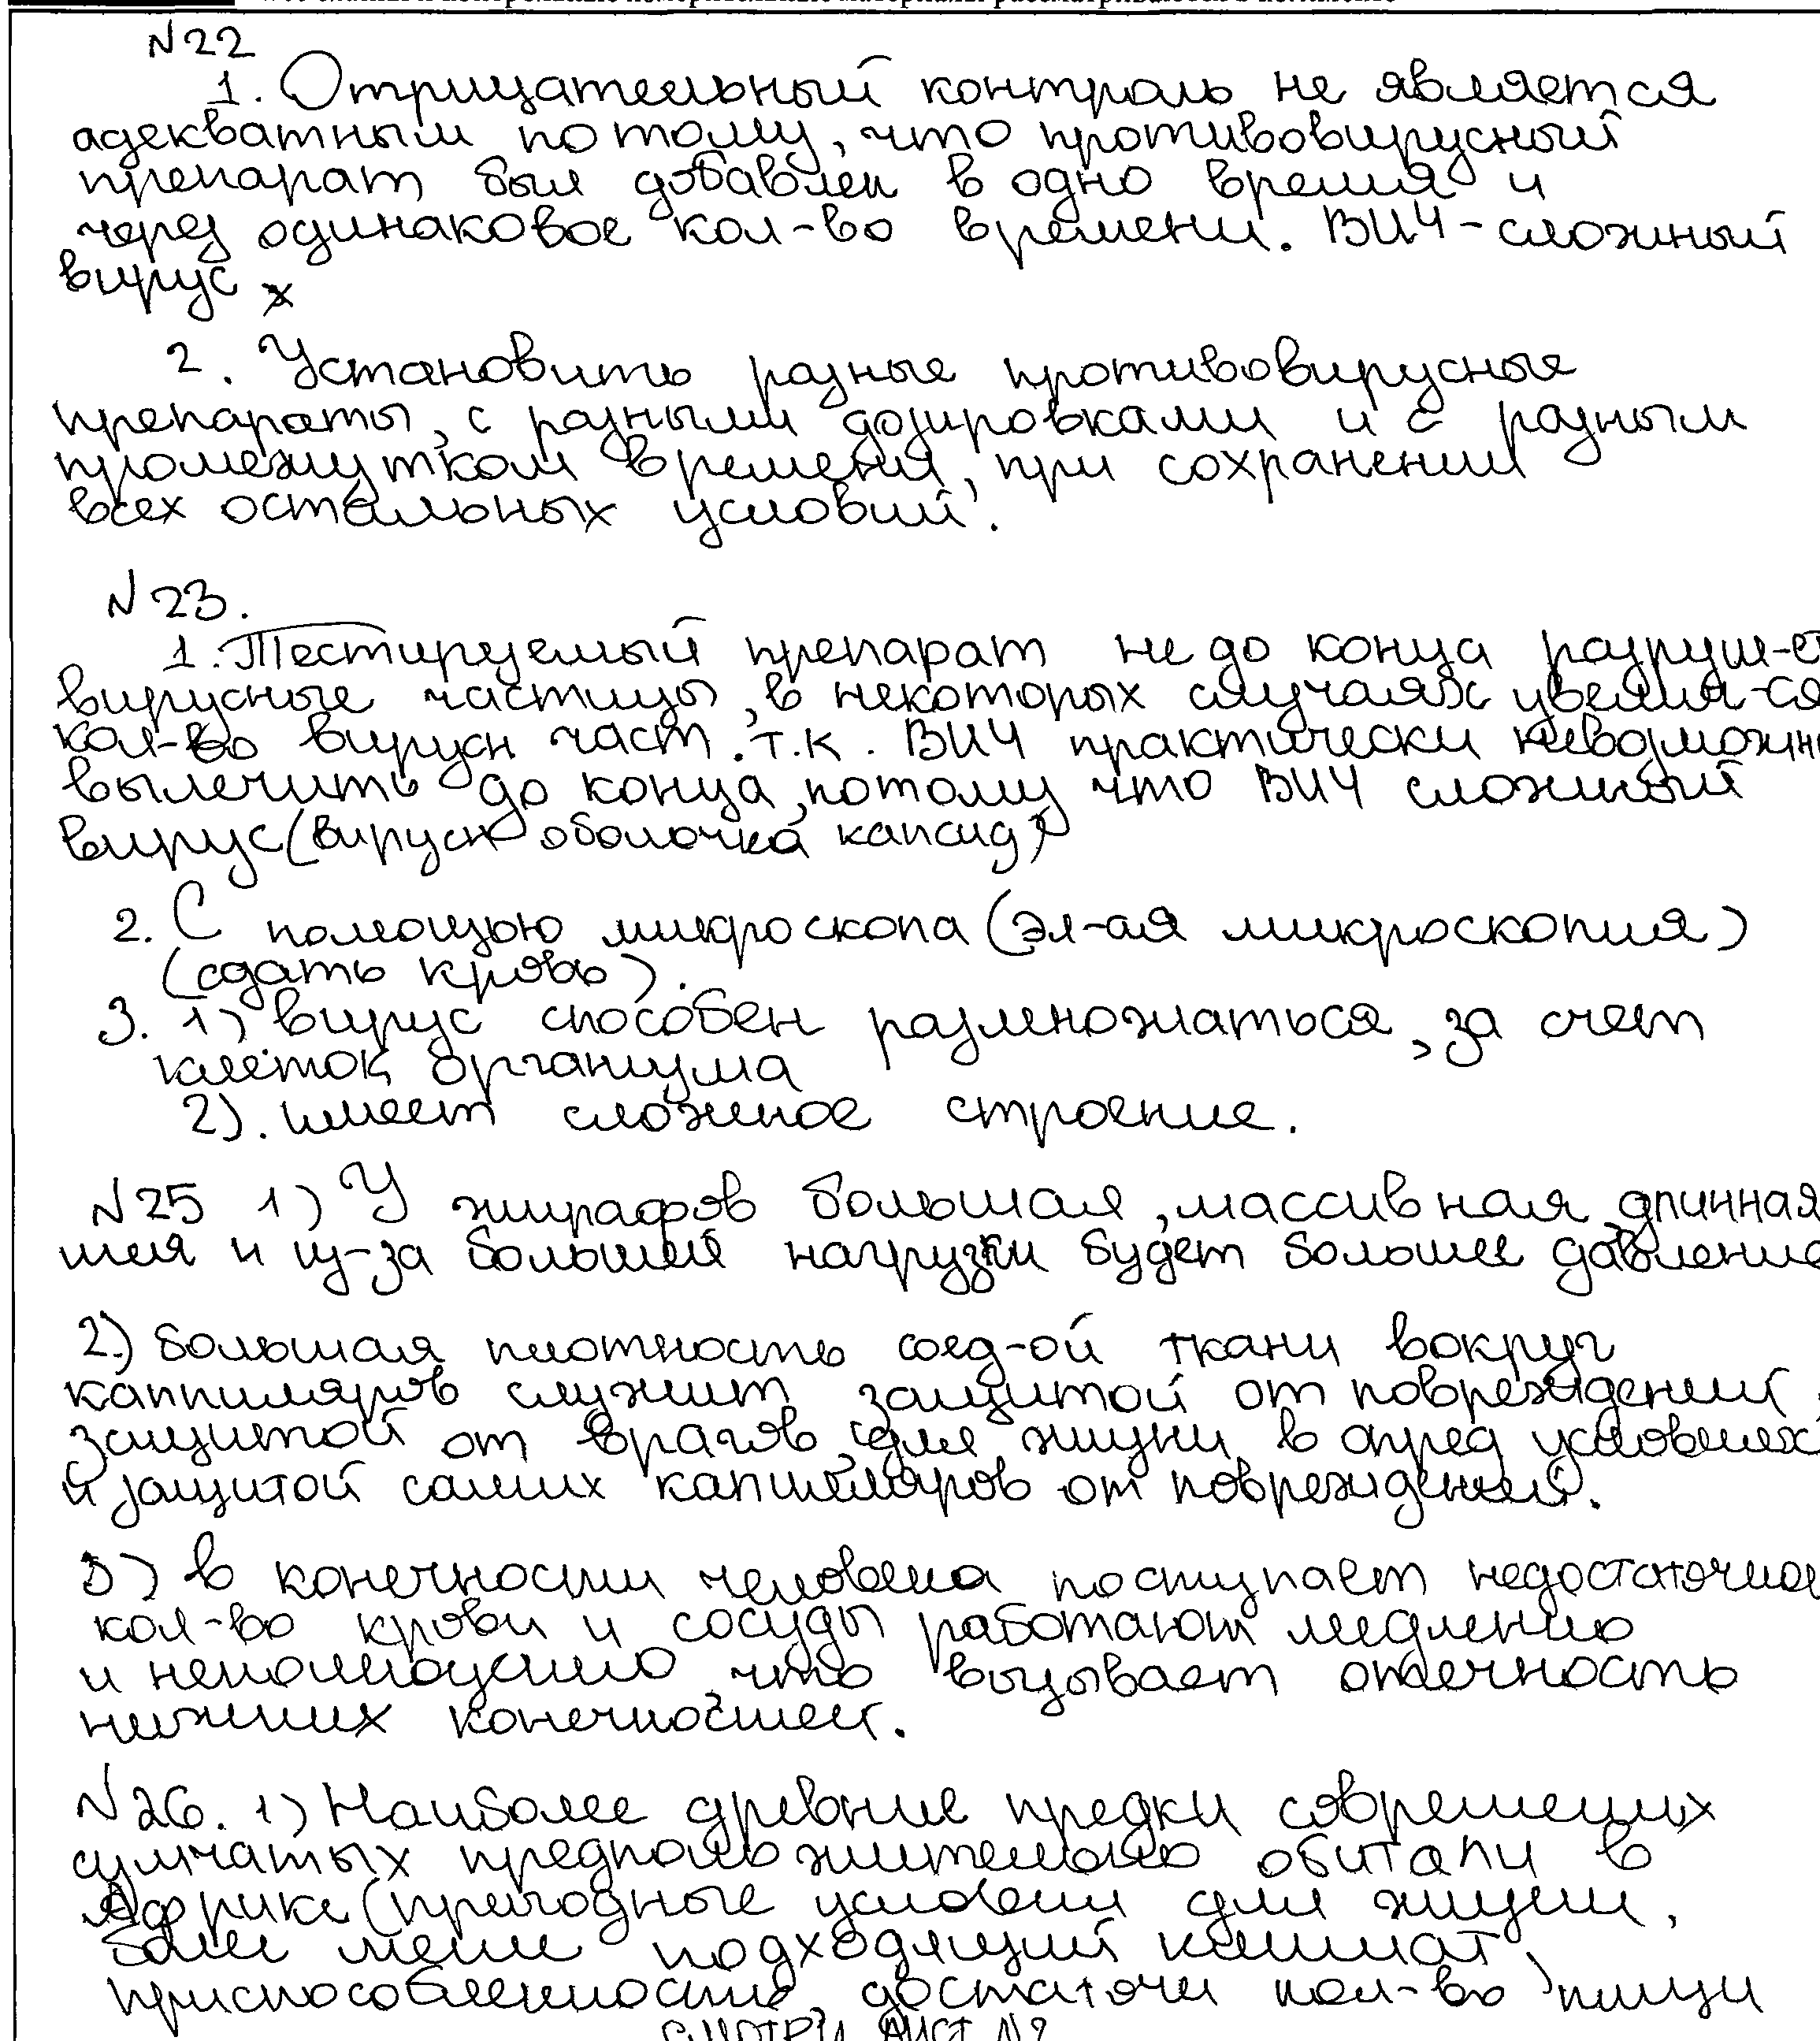 №22
1. Отрицательный контроль не является
адекватным потому, что противовирусный
препарат был добавлен в одно время и
через одинаковое кол-во времени. ВИЧ-сложный
вирус
2. Установить разные противовирусные
препараты, с разными дозировками и с разным
промежутком времени, при сохранении
всех остальных условий.
№23.
1. Тестируемый препарат не до конца разруш-ет
вирусные частицы, в некоторых случаях увелич-ся
кол-во вирусн част. т.к. ВИЧ практически невозможно
вылечить до конца, потому что ВИЧ сложный
вирус (вирусн оболочка капсид)
2. С помощью микроскопа (эл-ая микроскопия)
(сдать кровь).
3. 1) вирус способен размножаться, за счет
клеток организма
2). имеет сложное строение.
№25 1) У жирафов большая, массивная, длинная
шея и из-за большей нагрузки будет большее давление
2.) большая плотность соед-ой ткани вокруг
каппиляров служит защитой от повреждений,
защитой от врагов, для жизни в опред условиях
и защитой самих капилляров от повреждений.
3) в конечности человека поступает недостаточное
кол-во крови и сосуды работают медленно
и что вызывает отечность
нижних конечностей.
№26. 1) Наиболее древние предки современных
сумчатых предположительно обитали в
Африке (пригодные условия для жизни,
более менее подходящий климат,
приспособленность, достаточн кол-во пищи
СМОТРИ ЛИСТ №2